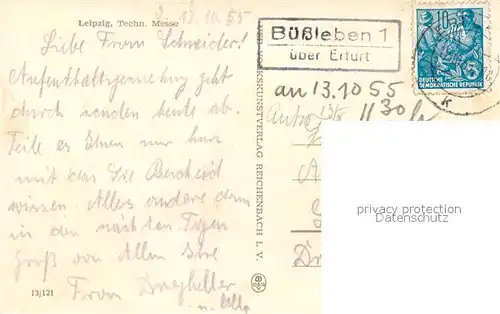 Leipzig, Techn. Messe
12.10.55
Liebe Frau Schneider!
Aufenthaltsgenehmigung geht
durch senden heute ab.
Teile es Ihnen nur kurz
mit das Sie Bescheid
wissen. Alles andere dann
in den nächsten Tagen
Gruß von Allen Ihre
Frau
13j121
VOLKSKUNSTVERLAG REICHENBACH I. V.
Büßleben 1
über Erfurt
an 13.10 55
1130
10
5
DEUTSCHE
DEMOKRATISCHE REPUBLIK
k
privacy protection
Datenschutz